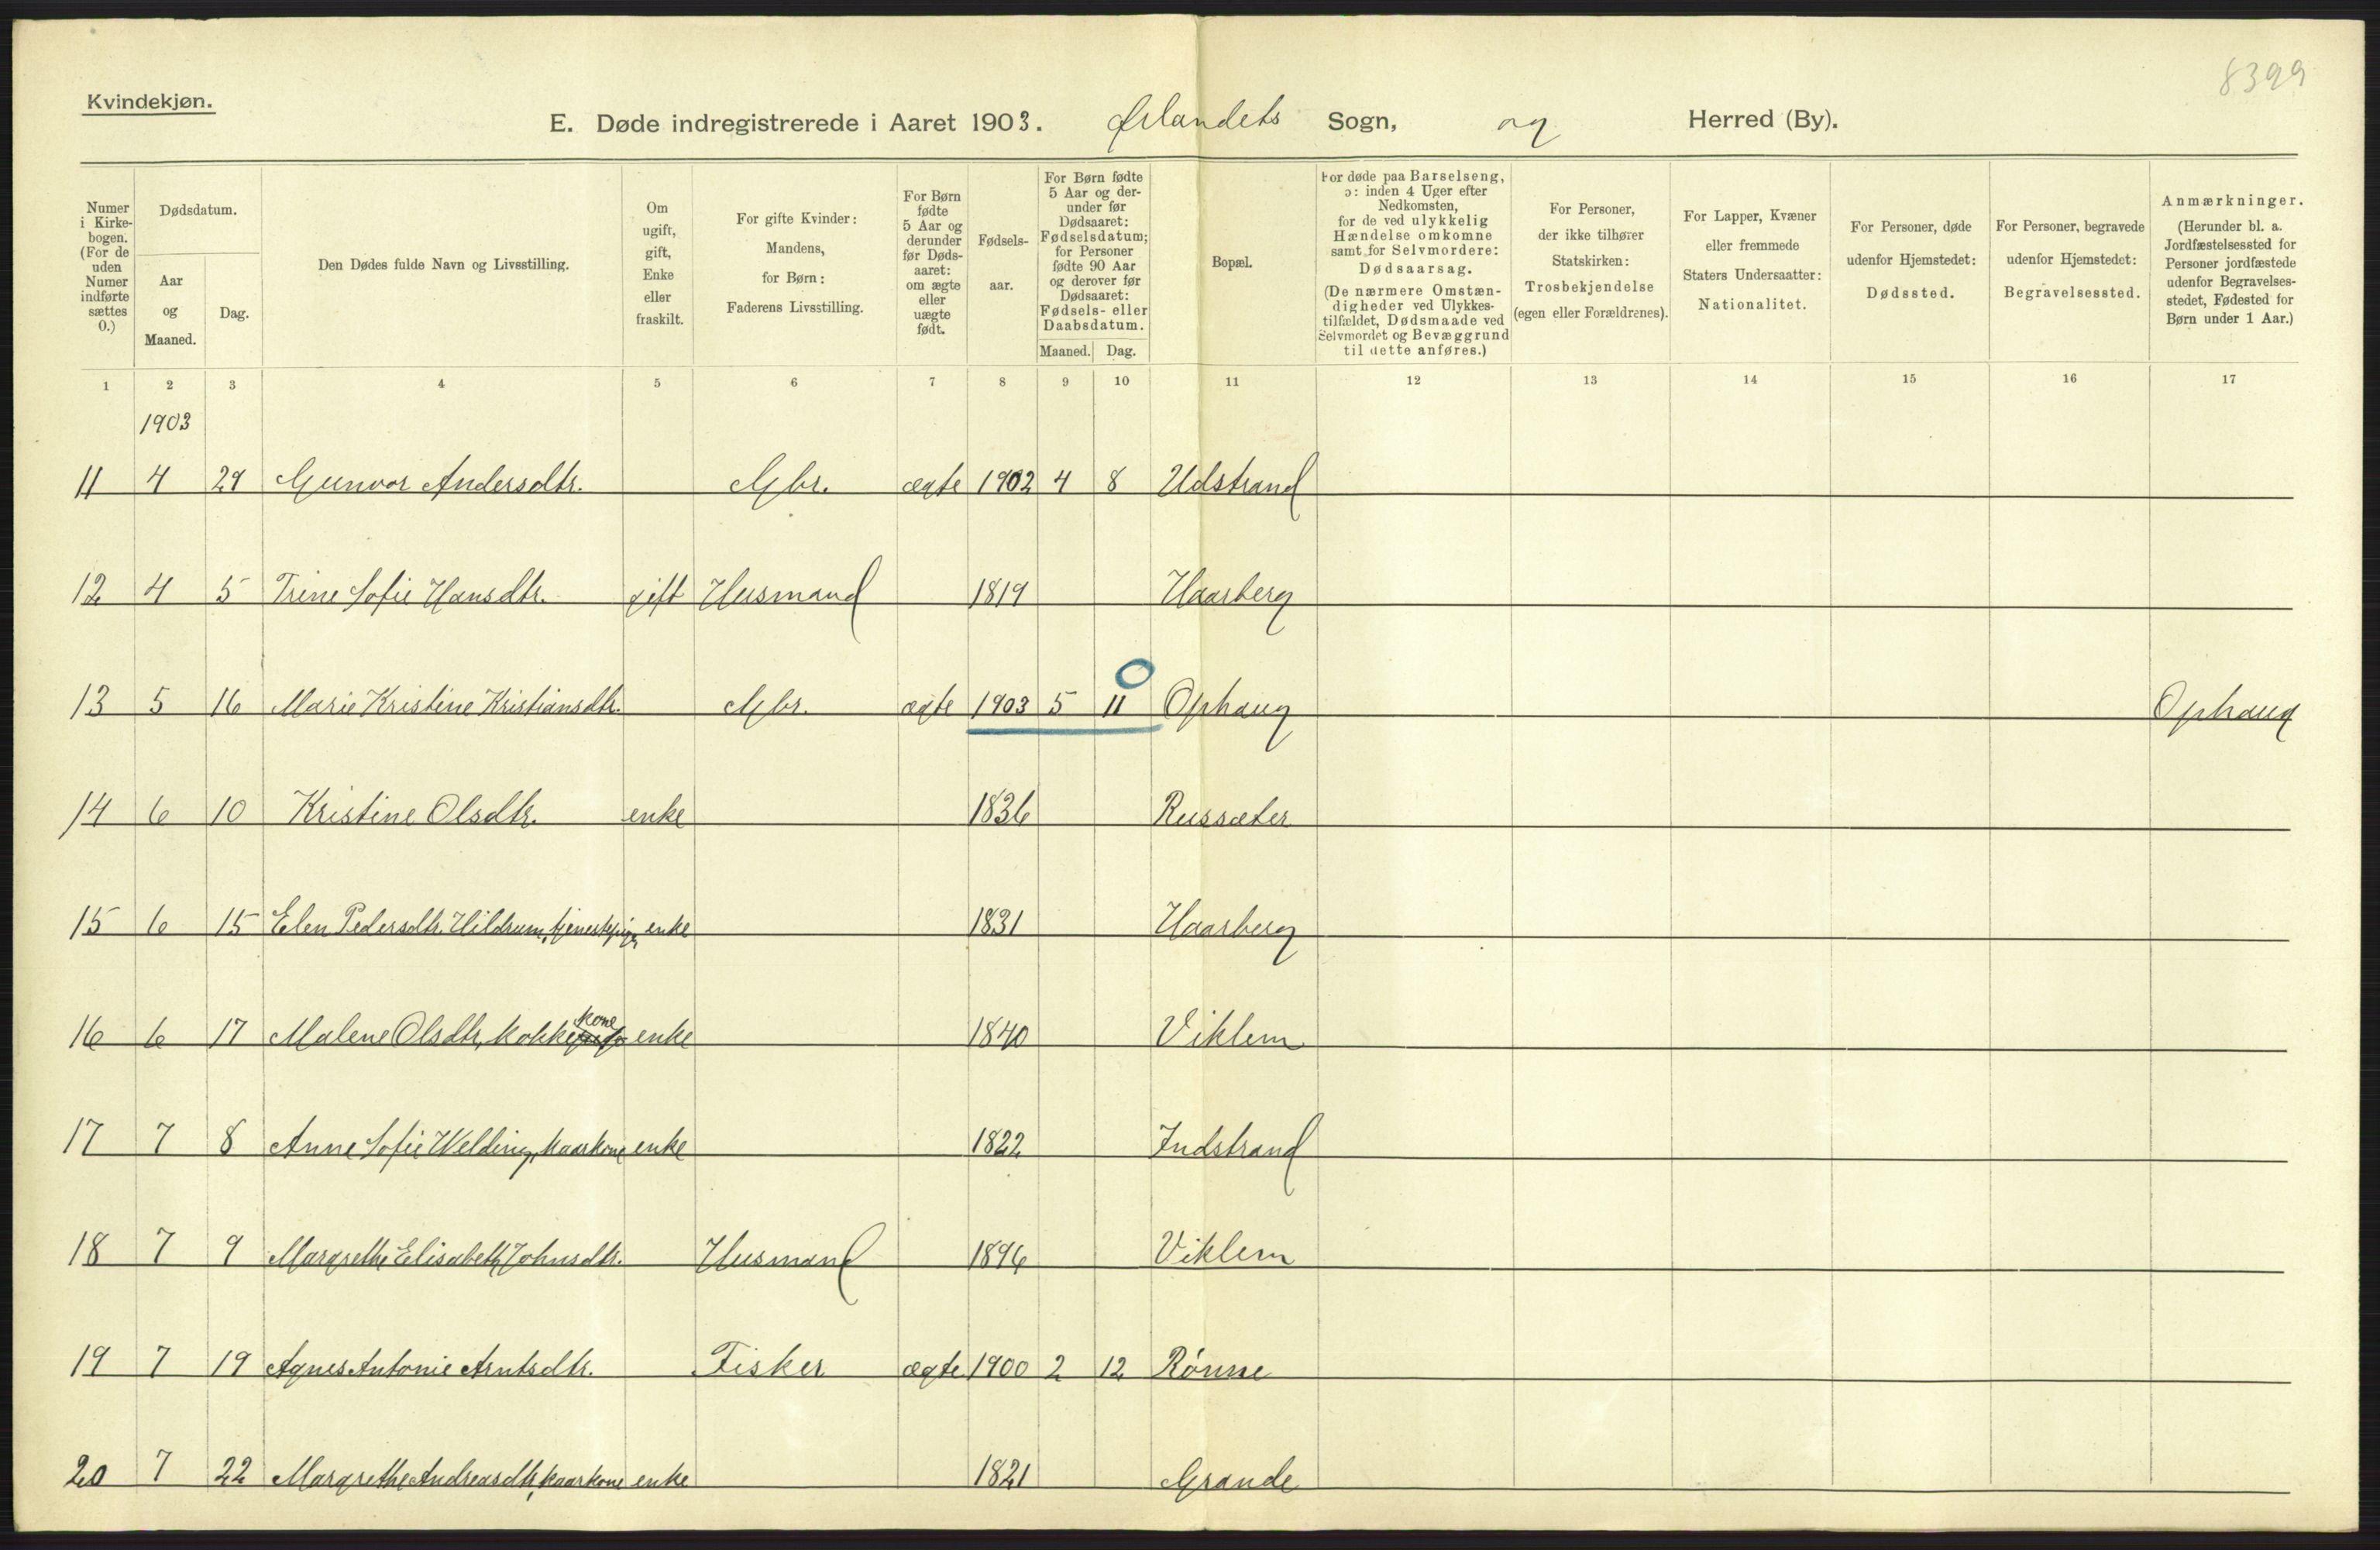 8399
Kvindekjøn.
E. Døde indregistrerede i Aaret 1903. Ørlandets Sogn, og Herred (By).
Numer i Kirkebogen. (For de uden Numer indførte sættes 0.)
Dødsdatum.
Aar og Maaned.
Dag.
Den Dødes fulde Navn og Livsstilling.
Om ugift, gift, Enke eller fraskilt.
For gifte Kvinder: Mandens, for Børn: Faderens Livsstilling.
For Børn fødte 5 Aar og derunder før Dødsaaret: om ægte eller uægte født.
Fødselsaar.
For Børn fødte 5 Aar og derunder før Dødsaaret: Fødselsdatum; for Personer fødte 90 Aar og derover før Dødsaaret: Fødsels- eller Daabsdatum.
Maaned. Dag.
Bopæl.
For døde paa Barselseng, ɔ: inden 4 Uger efter Nedkomsten, for de ved ulykkelig Hændelse omkomne samt for Selvmordere: Dødsaarsag. (De nærmere Omstændigheder ved Ulykkestilfældet, Dødsmaade ved Selvmordet og Bevæggrund til dette anføres.)
For Personer, der ikke tilhører Statskirken: Trosbekjendelse (egen eller Forældrenes).
For Lapper, Kvæner eller fremmede Staters Undersaatter: Nationalitet.
For Personer, døde udenfor Hjemstedet: Dødssted.
For Personer, begravede udenfor Hjemstedet: Begravelsessted.
Anmærkninger. (Herunder bl. a. Jordfæstelsessted for Personer jordfæstede udenfor Begravelsesstedet, Fødested for Børn under 1 Aar.)
1 2 3 4 5 6 7 8 9 10 11 12 13 14 15 16 17
1903
11 4 29 Gunvor Andersdtr. Gbr. ægte 1902 4 8 Udstrand
12 4 5 Trine Sofie Hansdtr. gift Husmand 1819 Haarberg
0
13 5 16 Marie Kristine Kristiansdtr. Gbr. ægte 1903 5 11 Ophaug Ophaug
14 6 10 Kristine Olsdtr. enke 1836 Russæter
15 6 15 Elen Pedersdtr. Hildrum, tjenestepige, enke 1831 Haarberg
16 6 17 Malene Olsdtr, kokkekone enke 1840 Viklem
17 7 8 Anne Sofie Welding, kaarkone enke 1822 Indstrand
18 7 9 Margrethe Elisabeth Johnsdtr. Husmand 1896 Viklem
19 7 19 Agnes Antonie Arntsdtr. Fisker ægte 1900 2 12 Rønne
20 7 22 Margrethe Andreasdtr, kaarkone enke 1821 Grande